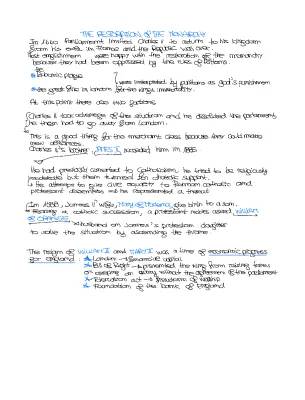 THE RESTORATION OF THE MONARCHY
In 1660 Parliament invited Charles II to return to his kingdom
from his exile in France and the Republic was over.
Most englishmen were happy with the restoration of the monarchy
because they had been oppressed by the rules of
bubonic plague
were interpreted by puritans as God's punishment
the great fire in London for the king's immorality.
At this point there are two parties
Charles II took advantage of the situation and he dissolved the parliament,
he then had to go away from London.
This is a good thing for the merchant class because they could make
Charles II's brother, JAMES II, succeeded him in 1685
He had previously converted to Catholicism, he tried to be religiously
but then turned to catholic support.
he attempts to give civic equality to Roman catholic and
protestant dissenters
In 1688, James II wife, Mary of Modena, give birth to a son.
a catholic succession, a protestant nobles asked WILLIAM
OF ORANGE
husband on James's protestant daughter
to solve the situation by ascending the throne
The reign of WILLIAM III and MARY II was a time of economic progress
for England:
London → financial capital
Bill of Rights → prevented the king from raising taxes
or keeping an army without the agreement of the parliament
Toleration act → freedom of worship
Foundation of the Bank of England